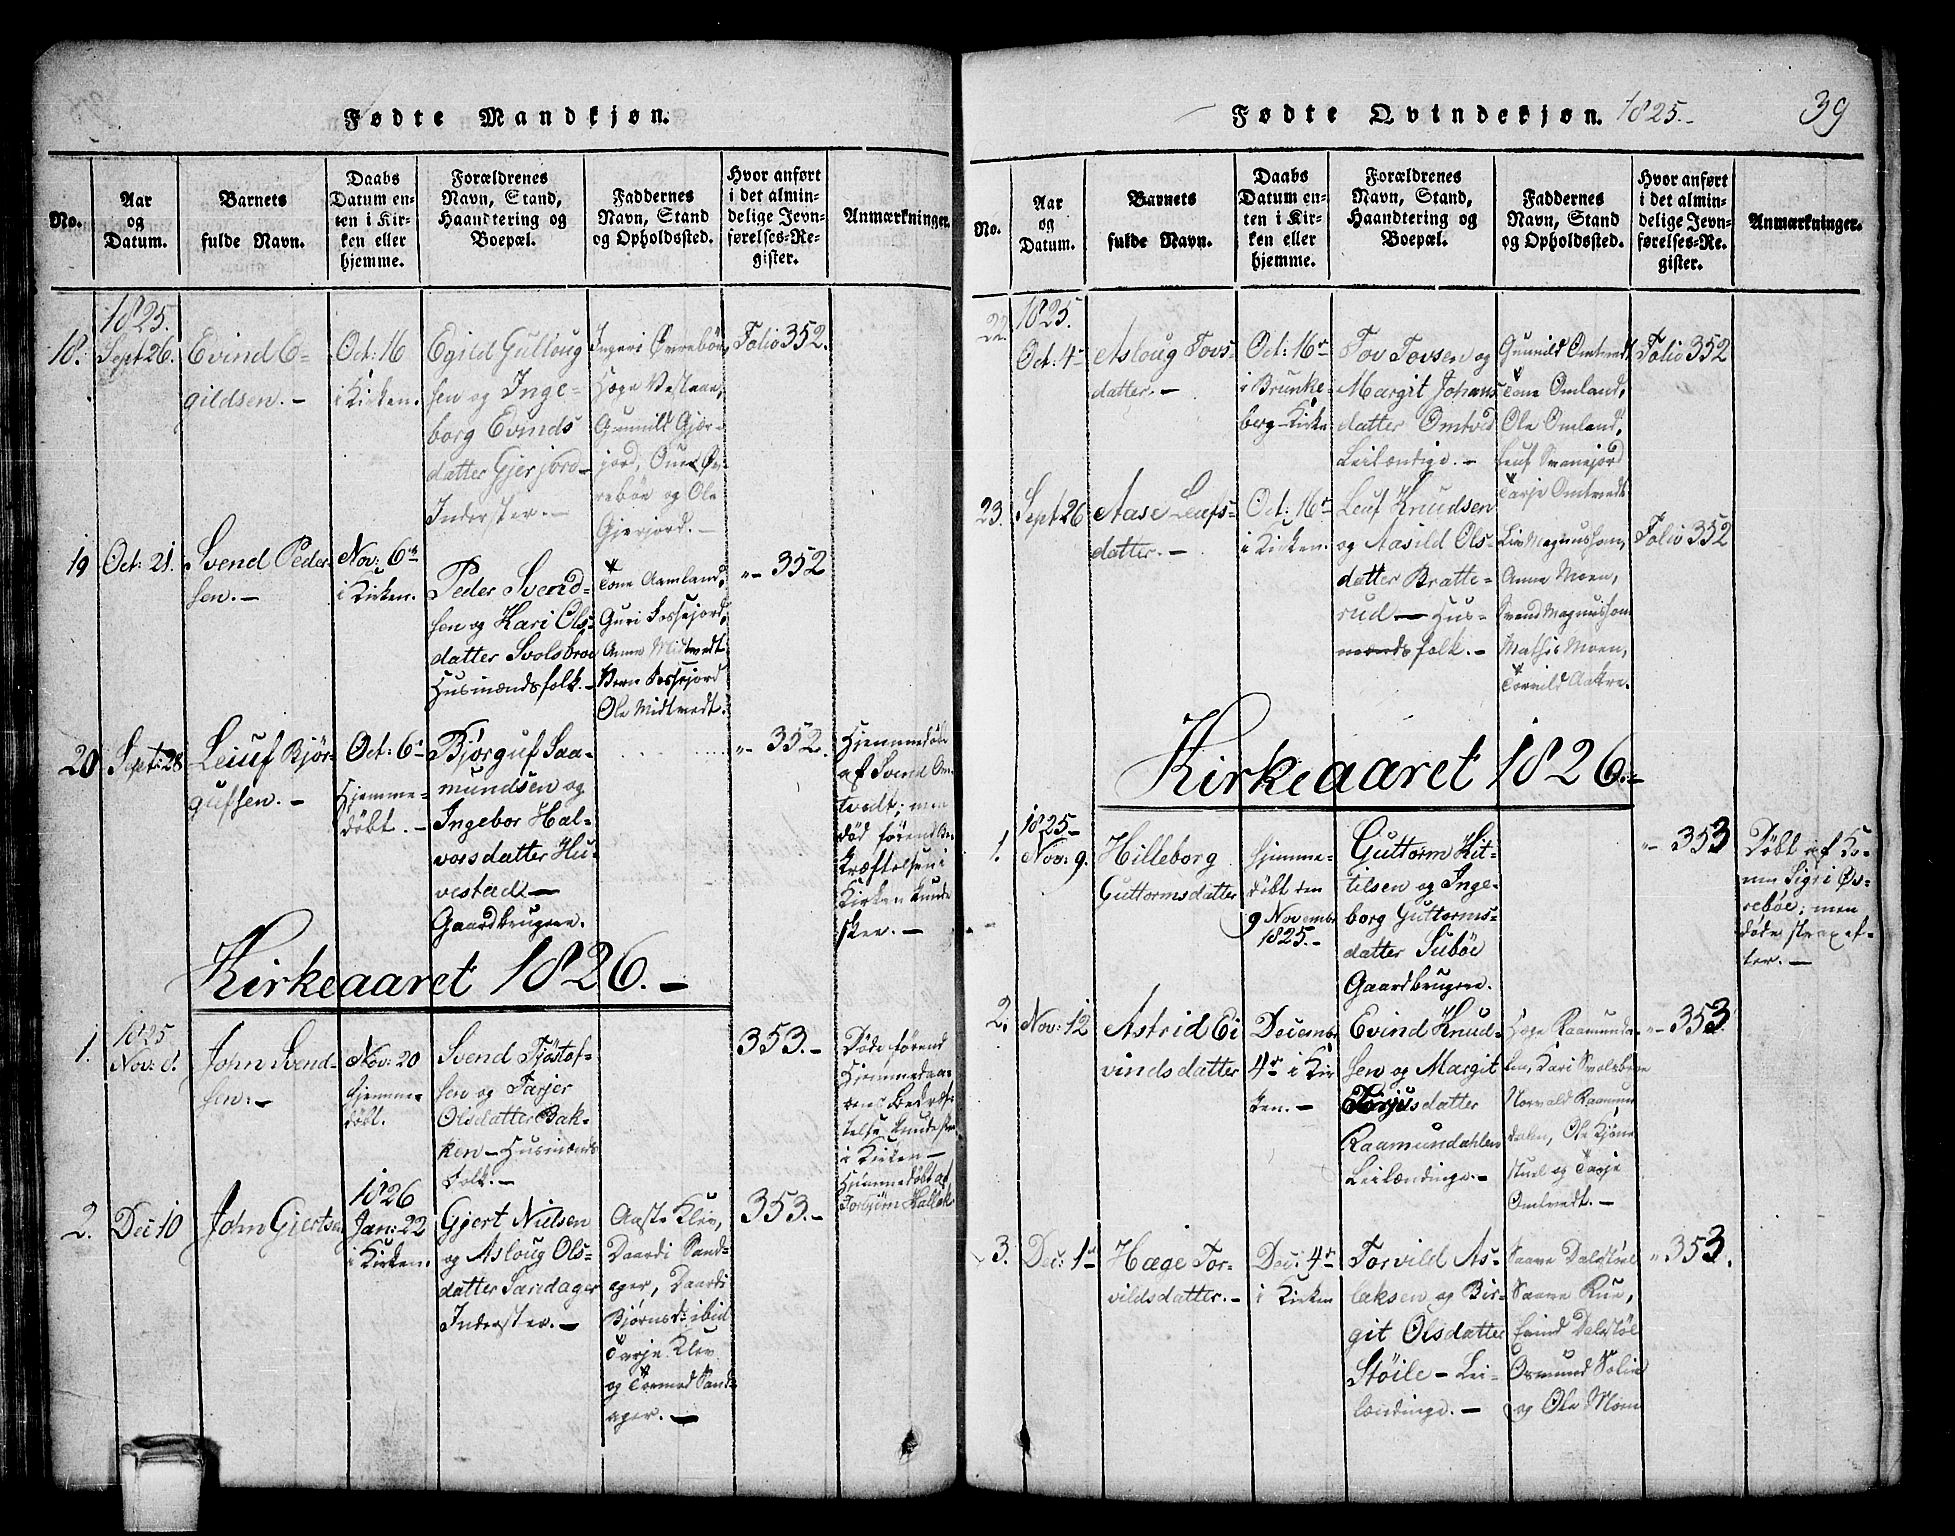 Fødte Mandkjøn.
No.
Aar
og
Datum.
Barnets
fulde Navn.
Daabs
Datum en-
ten i Kir-
ken eller
hjemme.
Forældrenes
Navn, Stand,
Haandtering og
Boepæl.
Faddernes
Navn, Stand
og Opholdssted.
Hvor anført
i det almin-
delige Jevn-
førelses-Re-
gister.
Anmærkninger.
1825.
18.
Sept. 26.
Evind E-
gildsen. -
Oct: 16
i Kirken.
Egild Gulloug
sen og Inge-
borg Evinds
datter Gjerjord-
Inderster. -
Ingeri Øvrebøe,
Hæge Vestaae,
Gunnild Gjær-
jord, Ouen Øv-
rebøe og Ole
Gjerjord. -
Folio 352.
19
Oct: 21.
Svend Peder
sen. -
Nov: 6te
i Kirken.
Peder Svend-
sen og Kari Ols-
datter Svolsbroe
Husmændsfolk. -
Tone Aamland,
Guri Fossejord,
Anne Midtvedt
Bern Fossejord
Ole Midtvedt.
"- 352
20
Sept: 28
Leiuf Bjør-
gufsen. -
Oct: 6te
Hjemme-
døbt. -
Bjørguf Saa-
mundsen og
Ingebor Hal-
vorsdatter Hu-
vestad -
Gaardbrugere.
"- 352.
Hjemmedøbt
af Svend Om-
tvedt; men
død førend Be-
kræftelsen i
Kirken kunde
skee. -
Kirkeaaret 1826. -
1.
1825
Nov: 8.
John Svend-
sen. -
Nov: 20
hjemme-
døbt.
Svend Tjøstof-
sen og Tarjer
Olsdatter Bak-
ken - Husmænds
Folk. -
353. -
Døde førend
Hjemmedaa-
bens Bekræf-
telse kunde skee
i Kirken -
Hjemmedøbt af
2.
Dec: 10
John Gjertsen
1826
Jan: 22
i Kirken.
Gjert Nielsen
og Asloug Ols-
datter Sandager
Inderster. -
Aaste Klev,
Daardi Sand-
ager, Daardi
Bjørnsd: ibid
Tarje Klev
og Tormod Sand-
ager. -
353. -
Fødte Qvindekjøn. 1825. -
39
No.
Aar
og
Datum.
Barnets
fulde Navn.
Daabs
Datum en-
ten i Kir-
ken eller
hjemme.
Forældrenes
Navn, Stand,
Haandtering og
Boepæl.
Faddernes
Navn, Stand
og Opholdssted.
Hvor anført
i det almin-
delige Jevn-
førelses-Re-
gister.
Anmærkninger.
22.
1825.
Oct. 4de
Asloug Tovs-
datter. -
Oct: 16de
i Brunke-
berg-Kirke
Tov Tovsen og
Margit Johans
datter Omtvid
Leilændige. -
Gunnild Omtvedt,
Tone Omland,
Ole Omland,
Leuf Svanejord
Tarje Omtvedt
Folio 352
23.
Sept. 26
Aase Leufs-
datter. -
Oct: 16de
i Kirken.
Leuf Knudsen
og Aasild Ols-
datter Bratte-
rud - Hus-
mandsfolk. -
Liv Magnushom,
Anne Moen,
Svend Magnushom
Mathis Moen,
Folio 352
Kirkeaaret 1826. -
1.
1825 -
Nov: 9.
Hilleborg
Guttormsdatter
Hjemme-
døbt den
9 Novembr
1825. -
Guttorm Kit-
tilsen og Inge-
borg Guttorms-
datter Subøe
Gaardbrugere.
"- 353
Døbt af Ko-
nen Sigri Øv-
rebøe; men
døde strax ef-
ter. -
2.
Nov: 12
Astrid Ei
vindsdatter
Decembr
4de i Kir
ken. -
Evind Knud-
sen og Margit
Torjusdatter
Raamundahlen
Leilændinge. -
Hæge Raamunda-
len, Kari Svolsbroe
Norvald Raamun
dalen, Ole Kjøne
stuel og Tarje
Omtvedt. -
"- 353
3.
Dec: 1te
Hæge Tor-
vildsdatter. -
Dec: 4de
i Kirken
Torvild As-
laksen og Bir-
git Olsdatter
Støile - Lei-
lændinge. -
Saave Dalstøel
Saave Rue,
Evind Dalstøl
Osmund Solie
og Ole Moen
" 353.